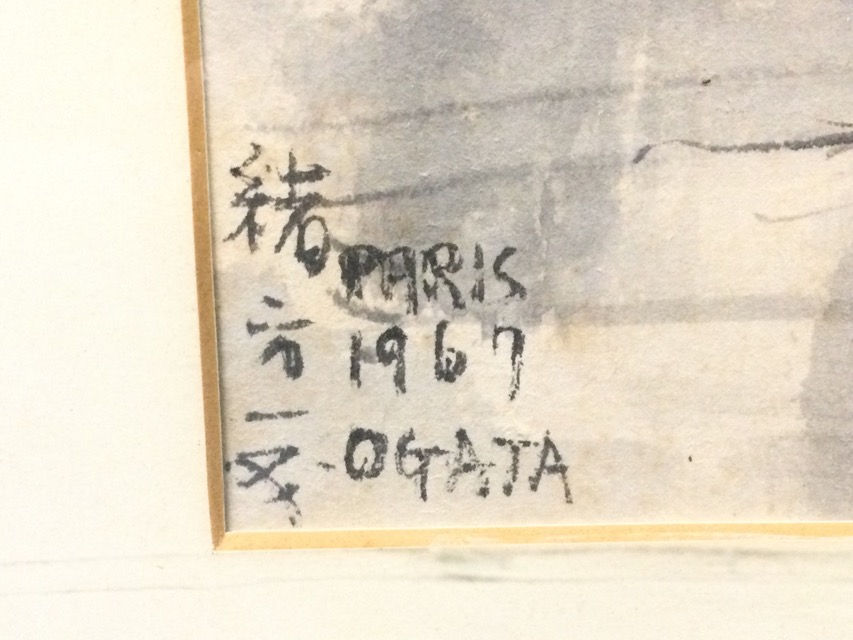 緒方
PARIS
1967
OGATA